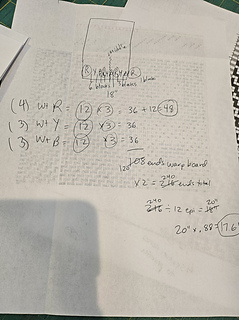 middle
R Y B R Y B R Y B R
6 blanks 1 blanks 1 blanks
18"
(4) Wt R = 12 x 3 = 36 + 12 = 48
(3) Wt Y = 12 x 3 = 36
(3) Wt B = 12 x 3 = 36
120 108 ends warp board
x 2 = 240 216 ends total
240 216 ÷ 12 epi = 20" 18"
20" x .88 = 17.6